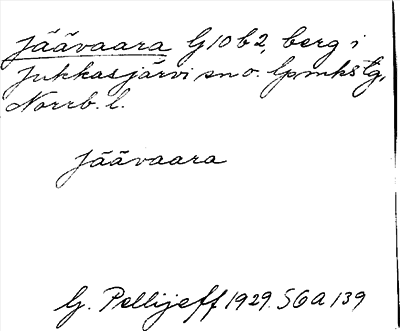 Jäävaara G10b2, berg i
Jukkasjärvi sn o. lpmkstg,
Norrb. l.
Jäävaara
G. Pellijeff 1929. SGA 139